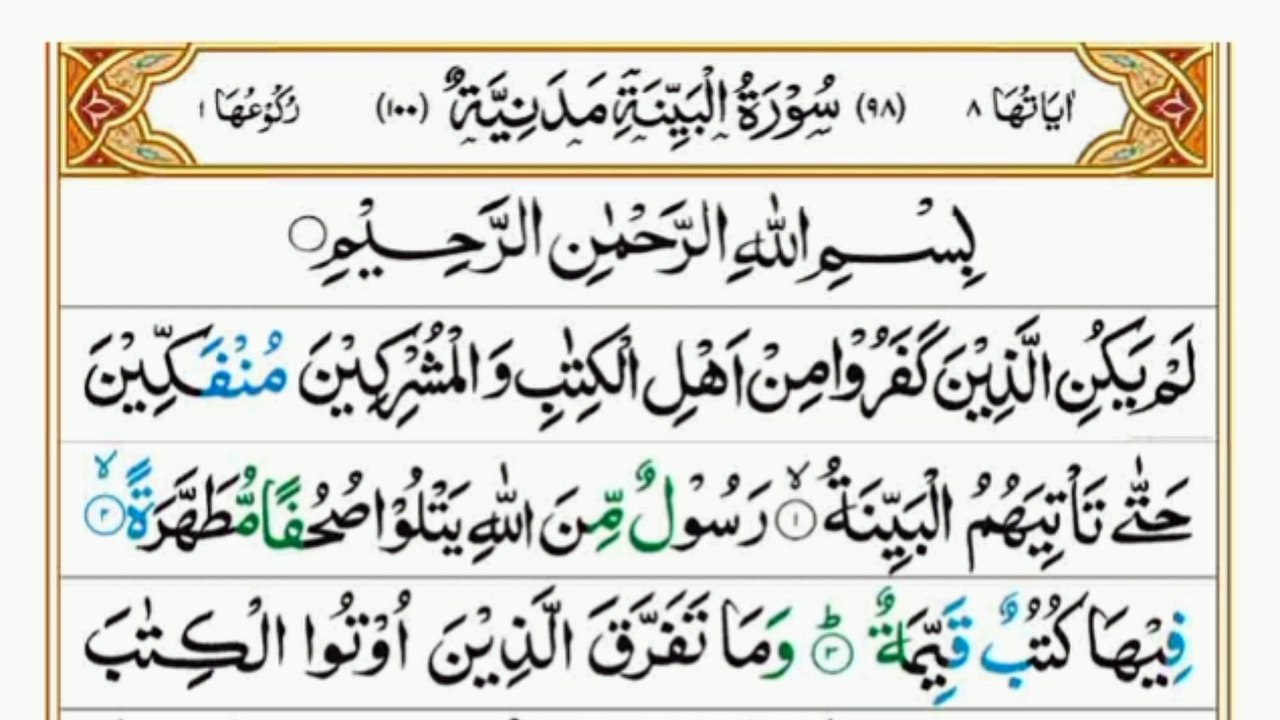 اٰيَاتُهَا ٨ (٩٨) سُوْرَةُ الْبَيِّنَةِ مَدَنِيَّةٌ (١٠٠) رُكُوْعُهَا ١
بِسْمِ اللّٰهِ الرَّحْمٰنِ الرَّحِيْمِ ○
لَمْ يَكُنِ الَّذِيْنَ كَفَرُوْا مِنْ اَهْلِ الْكِتٰبِ وَ الْمُشْرِكِيْنَ مُنْفَكِّيْنَ
حَتّٰى تَاْتِيَهُمُ الْبَيِّنَةُ ۙ‏ ١ رَسُوْلٌ مِّنَ اللّٰهِ يَتْلُوْا صُحُفًا مُّطَهَّرَةً ۙ‏ ٢
فِيْهَا كُتُبٌ قَيِّمَةٌ ؕ‏ ٣ وَمَا تَفَرَّقَ الَّذِيْنَ اُوْتُوا الْكِتٰبَ